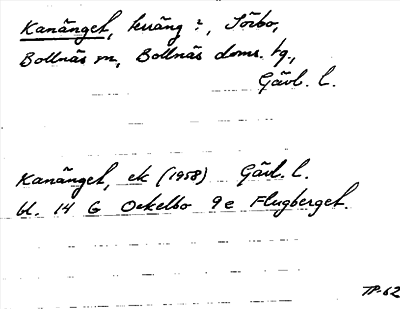 Kanänget, terräng?, Sörbo,
Bollnäs sn, Bollnäs doms. hg.,
Gävl. l.
Kanänget, ek (1958) Gävl. l.
bl. 14 G Ockelbo 9e Flugberget.
TP-62